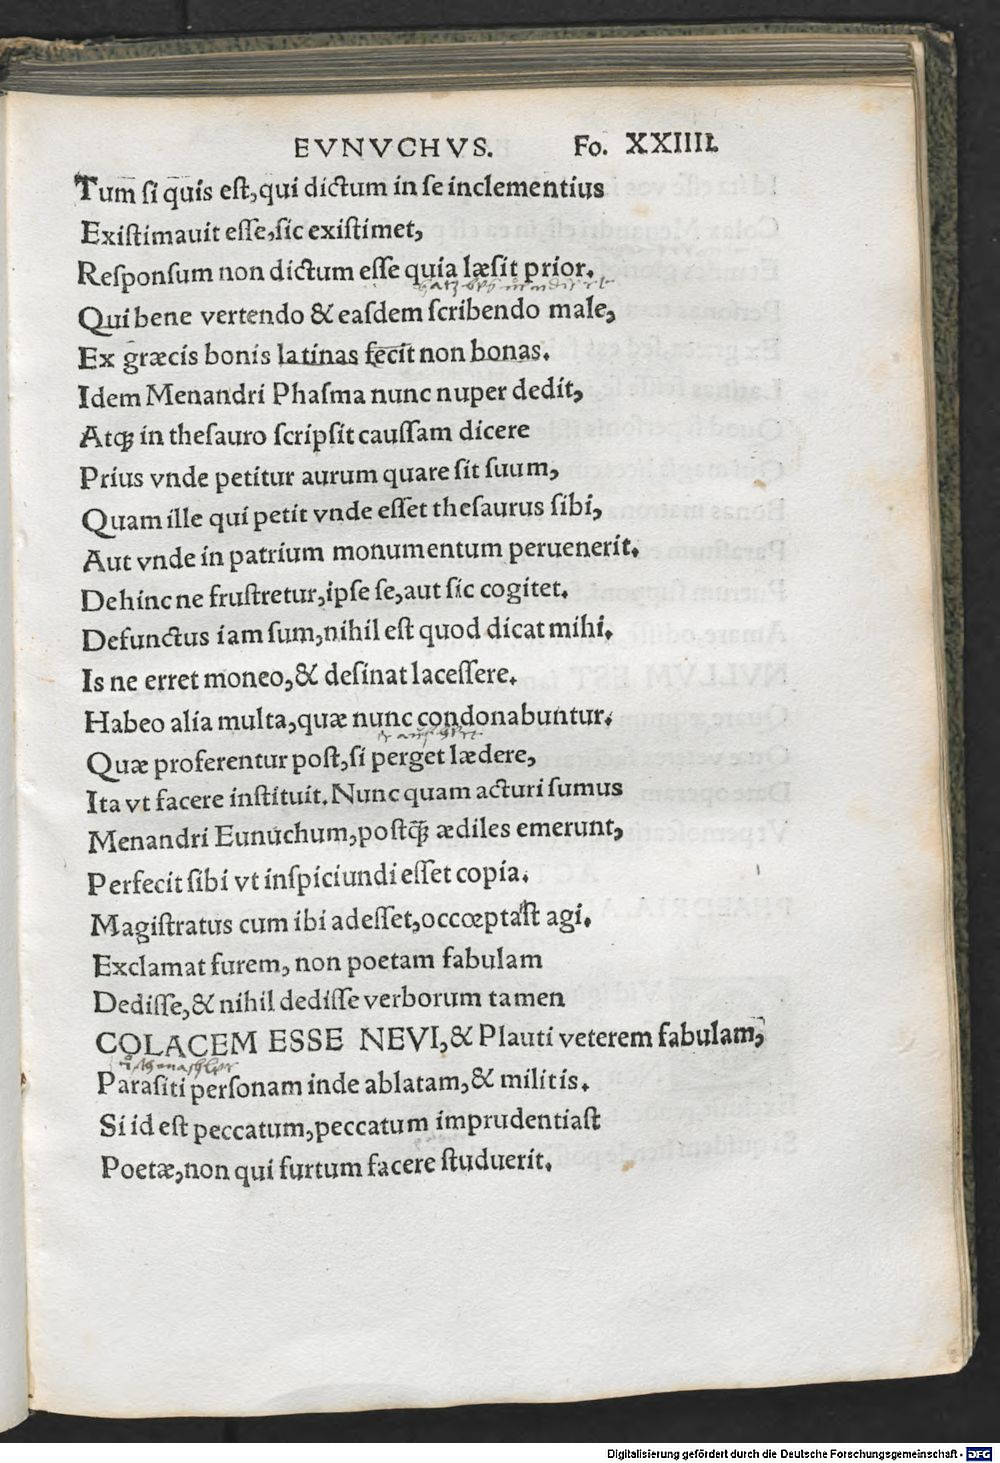 EVNVCHVS. Fo. XXIIII.
Tum si quis est, qui dictum in se inclementius
Existimauit esse, sic existimet,
Responsum non dictum esse quia læsit prior.
Qui bene vertendo & easdem scribendo male,
Ex græcis bonis latinas fecit non bonas.
Idem Menandri Phasma nunc nuper dedit,
Atq; in thesauro scripsit caussam dicere
Prius vnde petitur aurum quare sit suum,
Quam ille qui petit vnde esset thesaurus sibi,
Aut vnde in patrium monumentum peruenerit.
Dehinc ne frustretur, ipse se, aut sic cogitet.
Defunctus iam sum, nihil est quod dicat mihi.
Is ne erret moneo, & desinat lacessere.
Habeo alia multa, quæ nunc condonabuntur.
Quæ proferentur post, si perget lædere,
Ita vt facere instituit. Nunc quam acturi sumus
Menandri Eunuchum, postq̃; ædiles emerunt,
Perfecit sibi vt inspiciundi esset copia.
Magistratus cum ibi adesset, occœptast agi.
Exclamat furem, non poetam fabulam
Dedisse, & nihil dedisse verborum tamen
COLACEM ESSE NEVI, & Plauti veterem fabulam,
Parasiti personam inde ablatam, & militis.
Si id est peccatum, peccatum imprudentiast
Poetæ, non qui furtum facere studuerit.
Digitalisierung gefördert durch die Deutsche Forschungsgemeinschaft - DFG